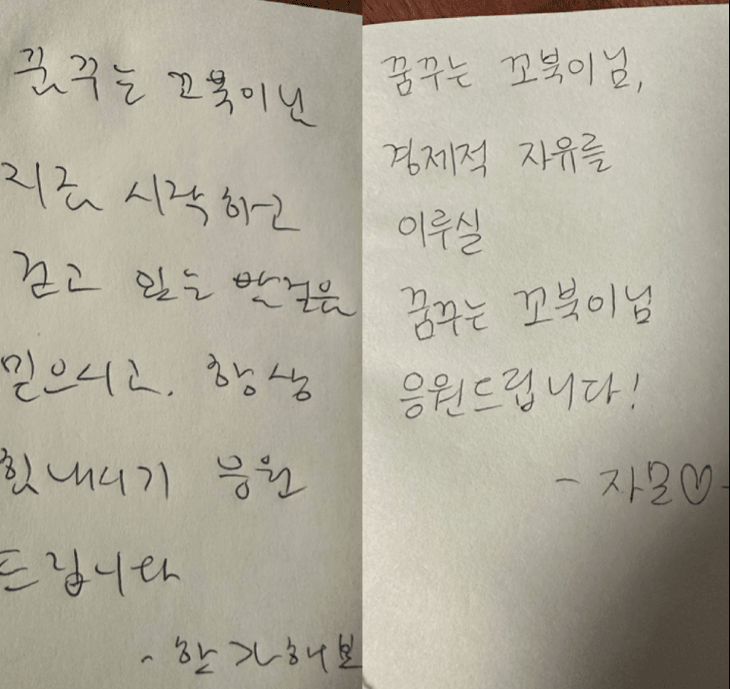 꿈꾸는 꼬북이님
지금 시작하고
걷고 있는 발걸음
믿으시고, 항상
힘내시기 응원
드립니다
- 한가해보
꿈꾸는 꼬북이님,
경제적 자유를
이루실
꿈꾸는 꼬북이님
응원드립니다!
- 자모♡-